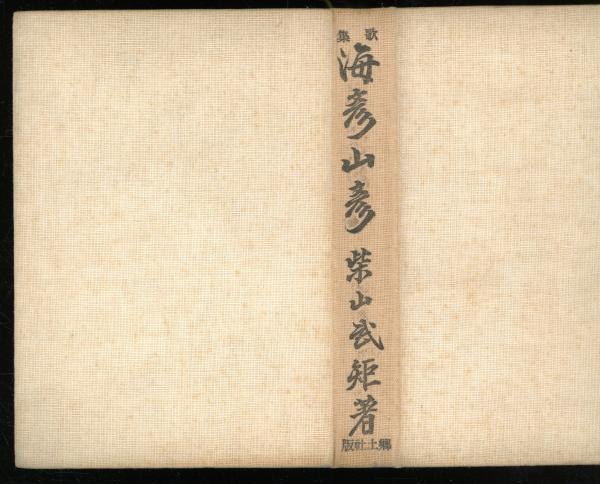 歌集
海彦山彦
柴山武矩著
郷土社版